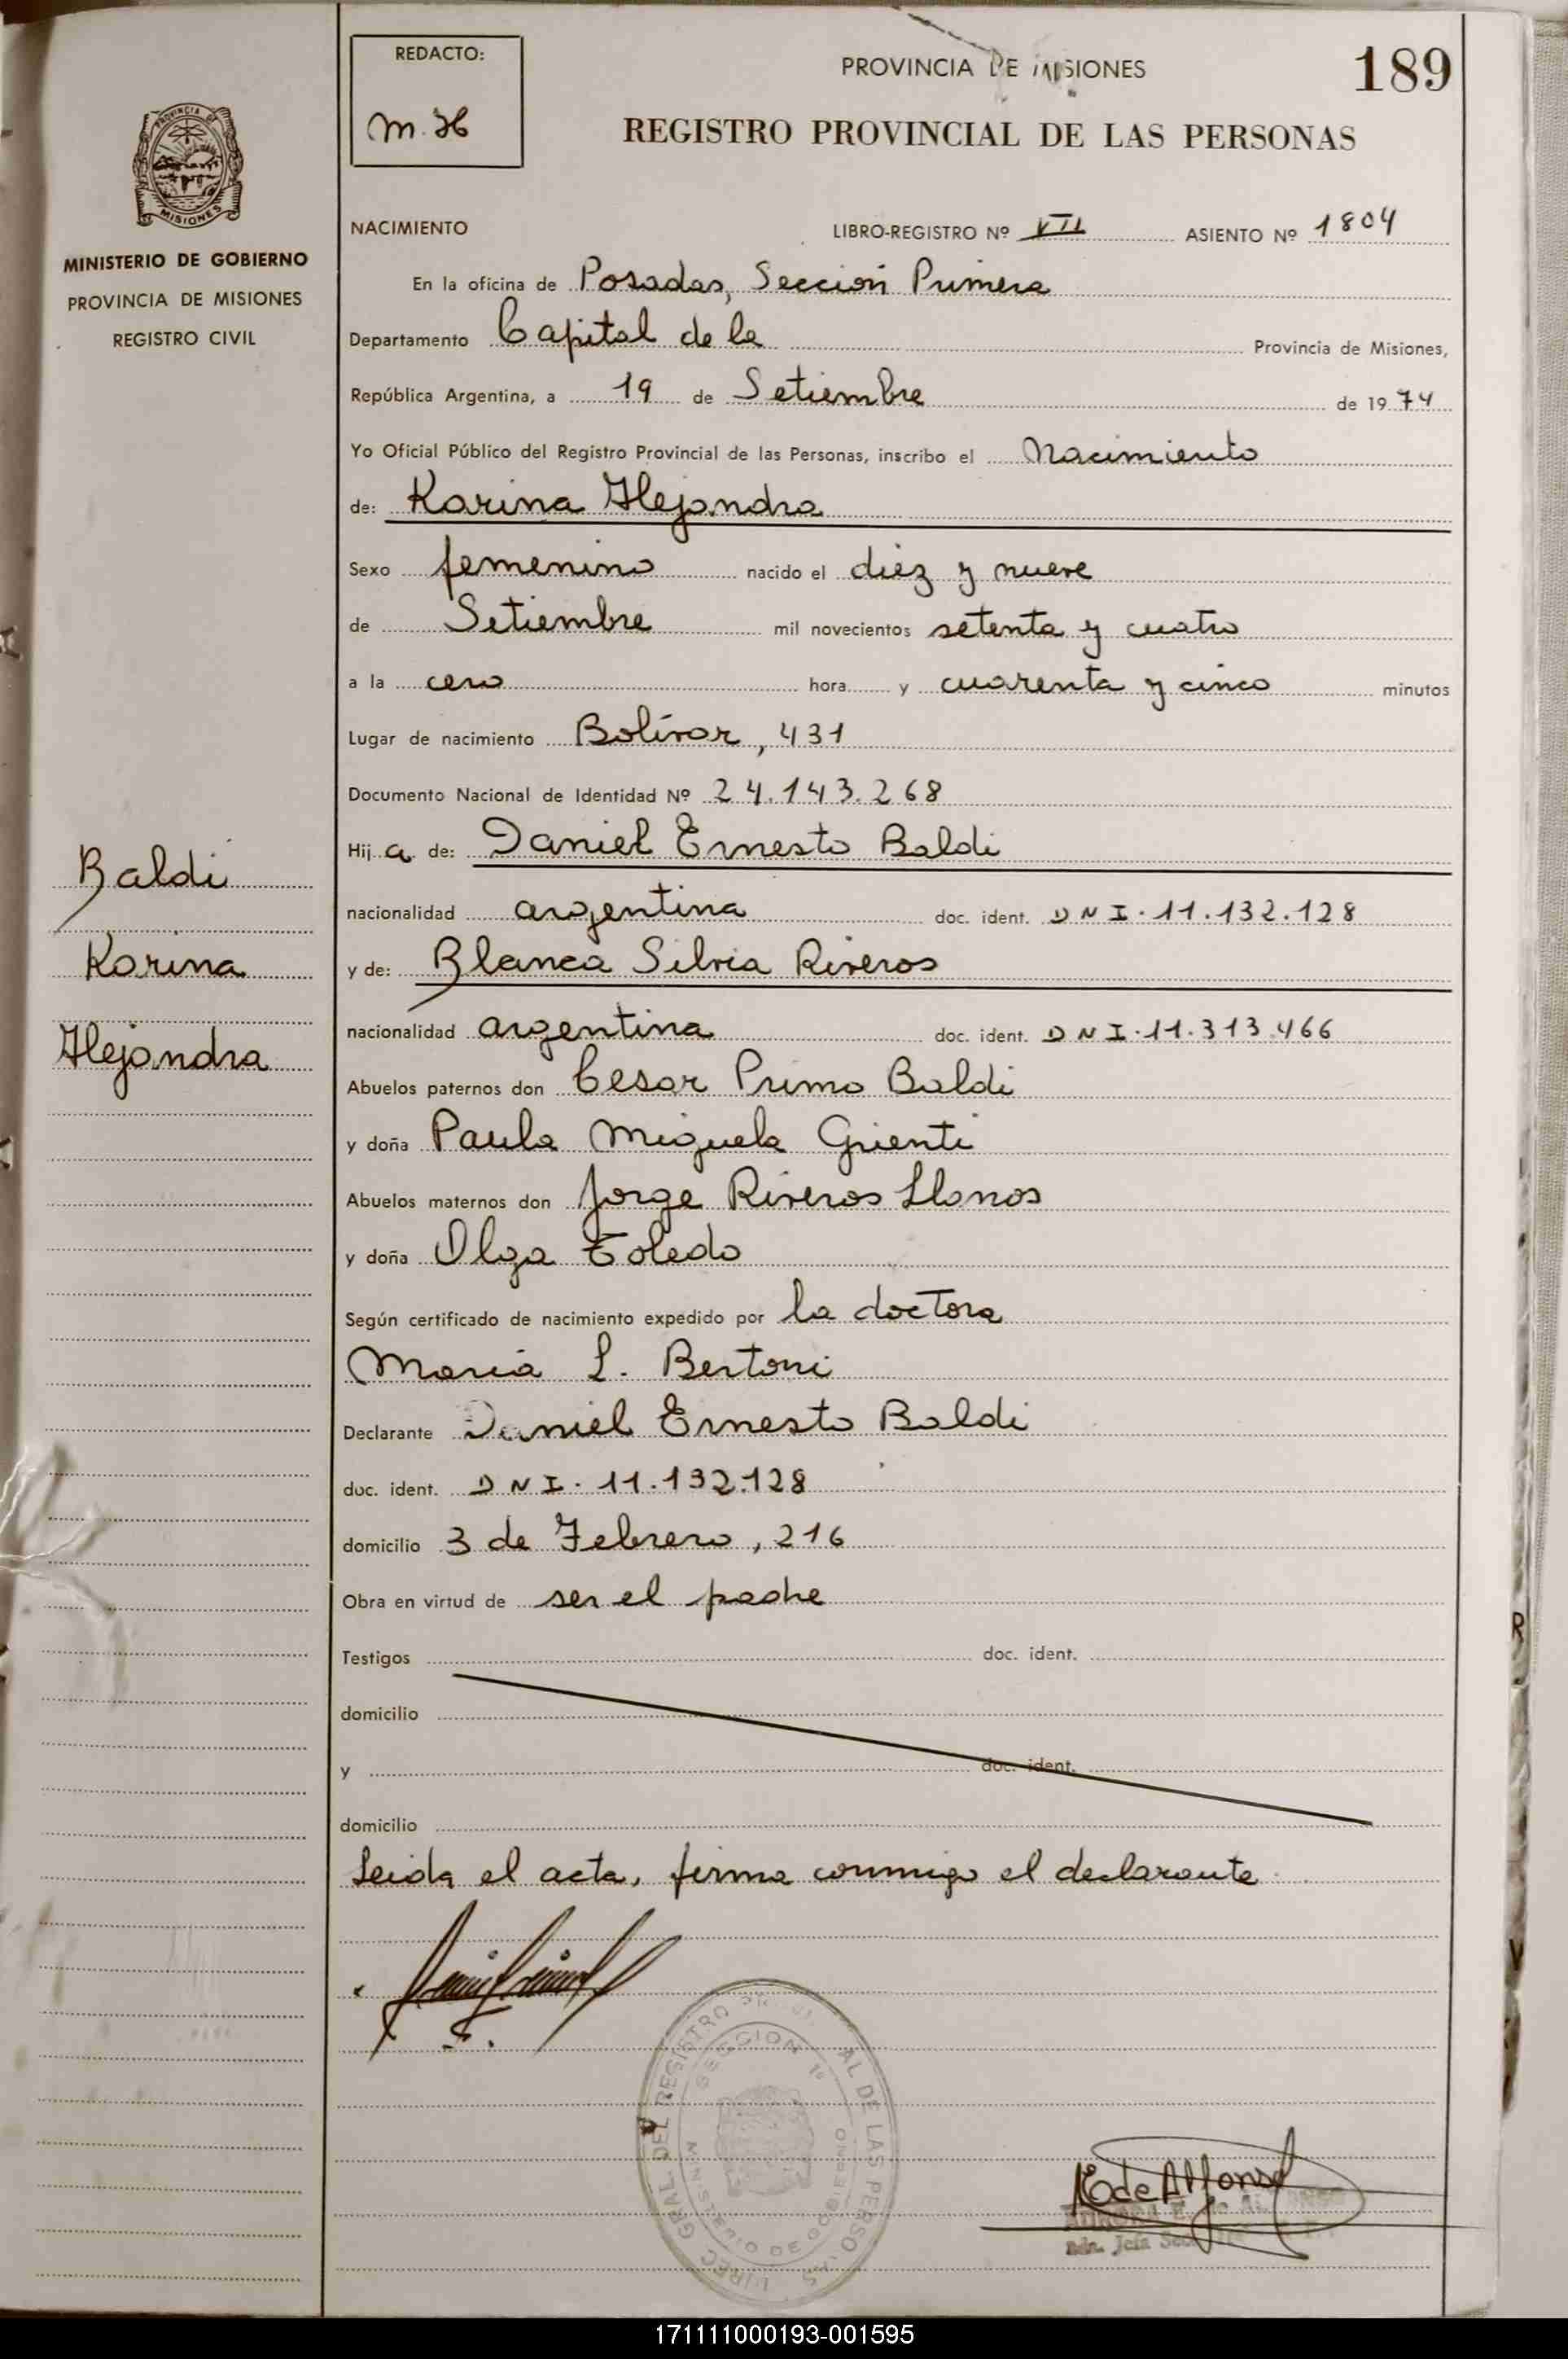 REDACTO:
M.H
PROVINCIA DE MISIONES
189
REGISTRO PROVINCIAL DE LAS PERSONAS
MISIONES
MINISTERIO DE GOBIERNO
PROVINCIA DE MISIONES
REGISTRO CIVIL
NACIMIENTO LIBRO-REGISTRO Nº VII ASIENTO Nº 1804
En la oficina de Posadas, Sección Primera
Departamento Capital de la Provincia de Misiones,
República Argentina, a 19 de Setiembre de 1974
Yo Oficial Público del Registro Provincial de las Personas, inscribo el Nacimiento
de: Karina Alejandra
Sexo femenino nacido el diez y nueve
de Setiembre mil novecientos setenta y cuatro
a la cero hora y cuarenta y cinco minutos
Lugar de nacimiento Bolívar, 431
Documento Nacional de Identidad Nº 24.143.268
Hija de: Daniel Ernesto Baldi
nacionalidad argentina doc. ident. DNI. 11.132.128
y de: Blanca Silvia Riveros
nacionalidad argentina doc. ident. DNI. 11.313.466
Abuelos paternos don Cesar Primo Baldi
y doña Paula Miguela Grienti
Abuelos maternos don Jorge Riveros Llanos
y doña Olga Toledo
Según certificado de nacimiento expedido por la doctora
María L. Bertoni
Declarante Daniel Ernesto Baldi
doc. ident. DNI. 11.132.128
domicilio 3 de Febrero, 216
Obra en virtud de ser el padre
Testigos doc. ident.
domicilio
y doc. ident.
domicilio
Leida el acta, firma conmigo el declarante
Baldi
Karina
Alejandra
SECCION 1ª
MINISTERIO DE GOBIERNO
E de Alfonso
171111000193-001595